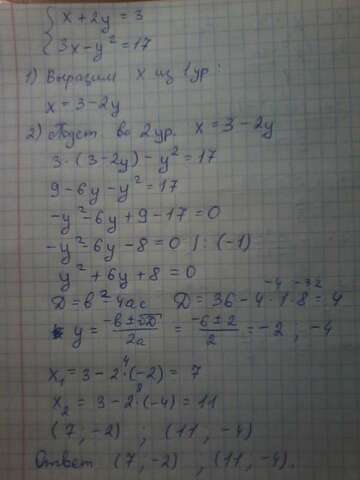 { x + 2y = 3
3x - y² = 17
1) Выразим x из 1 ур:
x = 3 - 2y
2) Подст во 2 ур. x = 3 - 2y
3·(3 - 2y) - y² = 17
9 - 6y - y² = 17
-y² - 6y + 9 - 17 = 0
-y² - 6y - 8 = 0 /:(-1)
y² + 6y + 8 = 0
D = b² - 4ac D = 36 - 4·1·8 = 4
-4 -32
y = -b±√D / 2a = -6±2 / 2 = -2 ; -4
x₁ = 3 - 2·(-2) = 7
4
x₂ = 3 - 2·(-4) = 11
8
(7, -2) ; (11, -4)
Ответ (7, -2) , (11, -4).